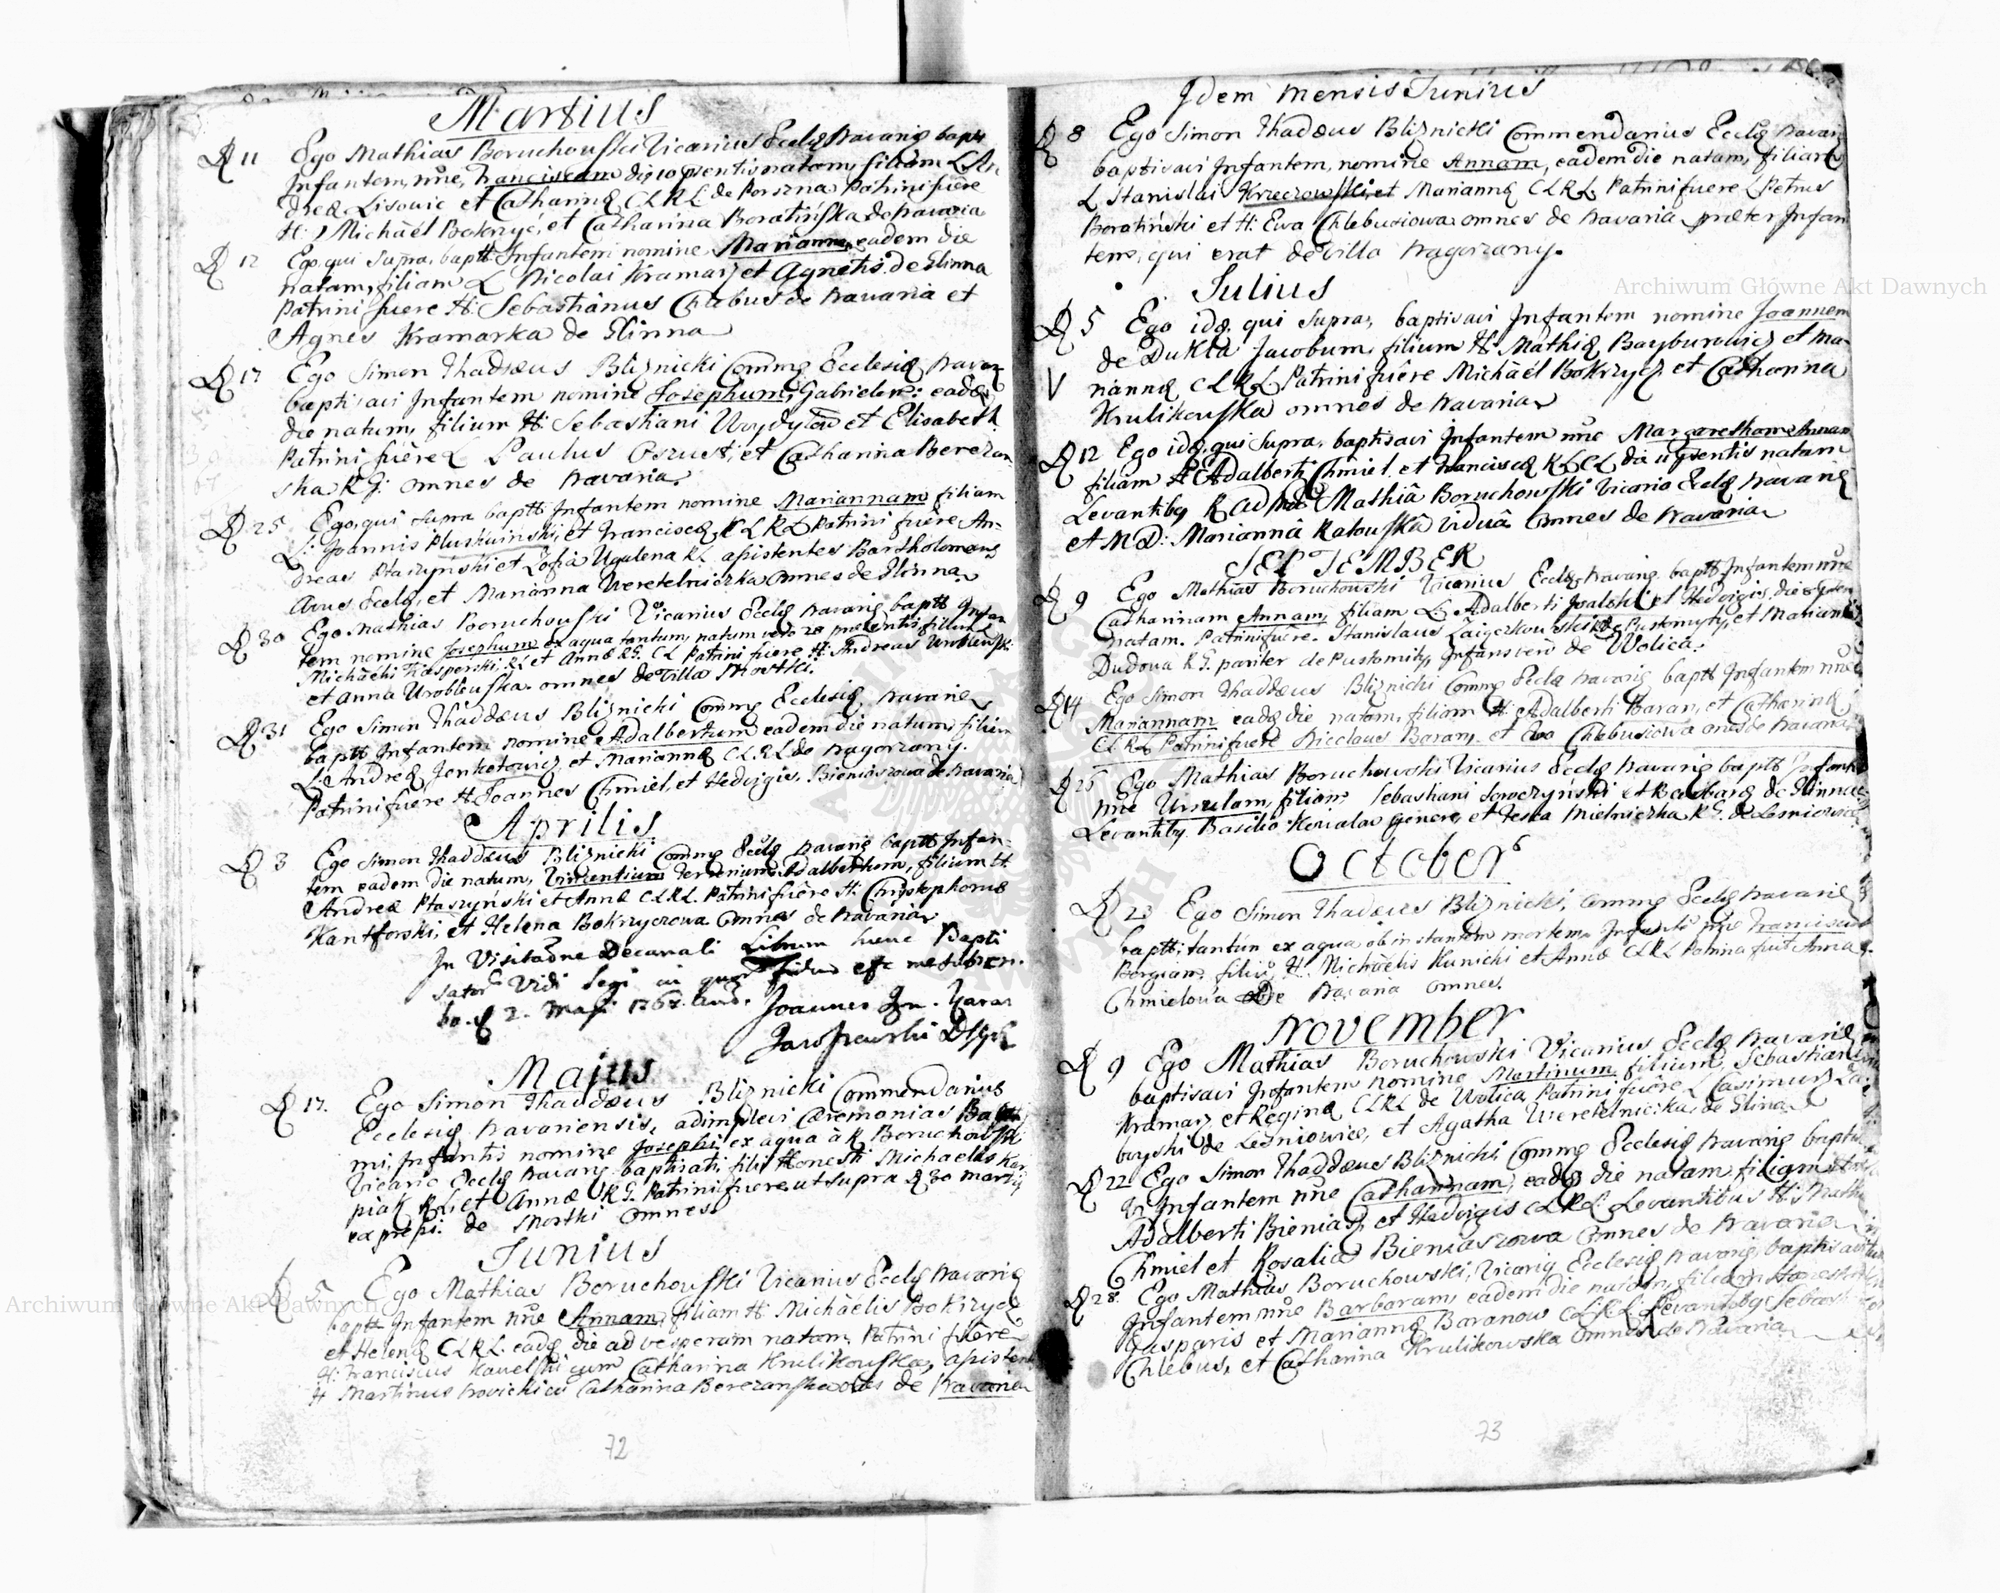 Martius
D 11 Ego Mathias Boruchowski Vicarius Eccla Navariæ bapt
Infantem, nne, Franciscam die 10 præsentis natam, filiam L An
dreæ Lisowic et Catharinæ CLRL de Porszna Patrini fuere
H: Michaël Bokrzyc, et Catharina Boratińska de Navaria
D 12 Ego, qui Supra, baptt Infantem nomine Mariannam eadem die
natam, filiam L Nicolai Kramarz et Agnetis de Glinna
Patrini fuere H: Sebastianus Chlebus de Navaria et
Agnes Kramarka de Glinna
D 17 Ego Simon Thadæus Bliznicki Comms Ecclesiæ Navar
baptisavi Infantem nomine Josephum, Gabrielem: eadem
die natum, filium H: Sebastiani et Elisabeth
Patrini fuere L Paulus et Catharina Berezan
ska RG: omnes de Navaria.
D 25 Ego, qui Supra baptt Infantem nomine Mariannam filiam
L: Joannis et Franciscæ, RLRL Patrini fuere An-
dreas Ptaszynski et Zofia Ugalena RL assistentes Bartholomæus
Avus Eccla, et Marianna Weretelniczka omnes de Glinna
D 30 Ego Mathias Boruchowski Vicarius Eccla Navariæ baptt Infan
tem nomine Josephum ex aqua tantum, natum vero 28 præsentis filium
Michaëli Kasperski RL et Annæ RG. CL Patrini fuere H: Andreas Wroblewski
et Anna Wroblewska omnes de villa Mostki.
D 31 Ego Simon Thaddæus Bliznicki Comms Ecclesiæ Navariæ
baptt Infantem nomine Adalbertum eadem die natum, filium
L: Andreæ Jenketowicz et Mariannæ CLRL de Nagorzany.
Patrini fuere H: Joannes Chmiel, et Hedvigis Bieniaszowa de Navaria
Aprilis
D 3 Ego Simon Thaddæus Bliznicki Comms Eccla Navariæ baptt Infan-
tem eadem die natum, Vincentium Ferrerium Adalbertum, filium H:
Andreæ Ptaszynski et Annæ CLRL. Patrini fuere H: Christophorus
Kantforski, et Helena Bokrzycowa omnes de Navaria
In Visitaone Decanali Librum hunc Bapti
satoru Vidi Legi in quor fidem me subscri
bo. D 2. Maji 1768 Anno. Joannes
Majus
D 17. Ego Simon Thaddæus Bliznicki Commendarius
Ecclesiæ Navariensis, adimplevi Cæremonias Baptis
mi, Infantis nomine Josephi, ex aqua à R Boruchowski
Vicario Eccla Navariæ baptisati, filii Honesti Michaelis Kas
piak RL et Annæ RG. Patrini fuere ut supra D 30 martii
expressi. de Mostki omnes
Junius
D 5 Ego Mathias Boruchowski Vicarius Eccla Navariæ
baptt Infantem nne Annam, filiam H: Michaëlis Bokrzyc
et Helenæ CLRL. eadem die ad vesperam natam, Patrini fuere
H: Franciscus Kawelski cum Catharina Krulikowska, assistent
H Martinus Nowicki cum Catharina Berezanska omnes de Navaria
72
Idem mensis Junius
D 8 Ego Simon Thadæus Bliznicki Commendarius Eccla Navariæ
baptisavi Infantem, nomine Annam, eadem die natam, filiam
L Stanislai Krzeczowski, et Mariannæ CLRL. Patrini fuere L Petrus
Boratiński et H: Ewa Chlebusiowa omnes de Navaria præter Infan
tem, qui erat de villa Nagorzany.
Julius
D 5 Ego idem, qui Supra, baptisavi Infantem nomine Joannem
de Dukla Jacobum, filium H: Mathiæ Bayburowicz et Ma-
V riannæ CLRL Patrini fuere Michaël Bokrzyc, et Catharina
Krulikowska omnes de Navaria
D 12 Ego idem, qui Supra, baptisavi Infantem nne Margaretham Annam
filiam H Adalberti Chmiel et Franciscæ RLCL die 11 præsentis natam
Levantibus R Adm Mathiâ Boruchowski Vicario Eccla Navariæ
et MD: Mariannâ Ratowskâ viduâ omnes de Navaria
SEPTEMBER
D 9 Ego Mathias Boruchowski Vicarius Eccla Navariæ baptt Infantem nne
Catharinam Annam, filiam L: Adalberti et Hedvigis, die
natam. Patrini fuere. Stanislaus de Pustomyty, et Marianna
Dudowa RG. pariter de Pustomity, Infans vero de Wolica.
D 14 Ego Simon Thaddæus Bliznicki Comms Eccla Navariæ baptt Infantem nne
Mariannam eadem die natam, filiam H: Adalberti Baran, et Catharinæ
CLRL Patrini fuere Nicolaus Baran. et Ewa Chlebusiowa omnes de Navaria
D 26 Ego Mathias Boruchowski Vicarius Eccla Navariæ baptt Infante
nne Ursulam, filiam Sebastiani et Barbaræ de Glinna
Levantibus Basilio Kowalow genero, et Tecla Mielniczka RG. de Lesniowice
October
D 23 Ego Simon Thadæus Bliznicki, Comms Eccla Navariæ
baptt: tantùm ex aqua ob instantem mortem Infanti nne Franciscum
Borgiam, filium H. Michaëlis Kunicki et Annæ CLRL Patrina fuit Anna
Chmielowa de Navaria omnes.
November
D 9 Ego Mathias Boruchowski Vicarius Eccla Navariæ
baptisavi Infantem nomine Martinum filium, Sebastiani
Kramarz et Reginæ CLRL de Wolica Patrini fuere L Casimirus Za
buyski de Lesniowice, et Agatha Weretelniczka, de Glina
D 22 Ego Simon Thaddæus Bliznicki Comms Ecclesiæ Navariæ baptisa
vi Infantem nne Catharinam, eadem die natam, filiam
Adalberti Bieniasz, et Hedvigis CLRL: Levantibus H: Mathia
Chmiel et Rosalia Bieniaszowa omnes de Navaria
D 28. Ego Mathias Boruchowski, Vicarius Ecclesiæ Navariæ, baptisavi
Infantem nne Barbaram, eadem die natam, filiam Honesti
Gasparis et Mariannæ Baranow CLRL: Levantibus Sebast
Chlebus, et Catharina Krulikowska omnes de Navaria
73
Archiwum Główne Akt Dawnych
Archiwum Główne Akt Dawnych